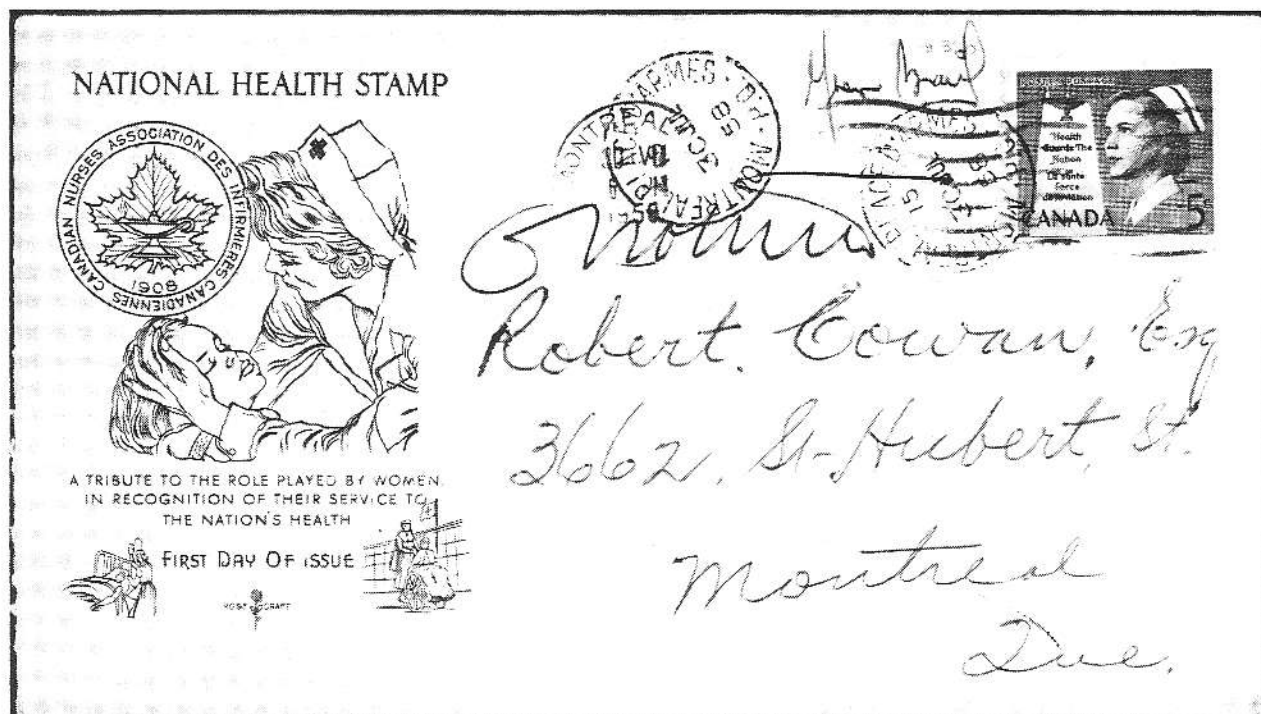 NATIONAL HEALTH STAMP
CANADIAN NURSES ASSOCIATION DES INFIRMIÈRES CANADIENNES
1908
A TRIBUTE TO THE ROLE PLAYED BY WOMEN
IN RECOGNITION OF THEIR SERVICE TO
THE NATION'S HEALTH
FIRST DAY OF ISSUE
MONTREAL
PLACE D'ARMES · P.Q. · MONTREAL
58
Health
Guards The
Nation
La santé
Force
de la Nation
CANADA 5
Robert Cowan, Esq
3662, St-Hubert, St.
Montreal
Que.